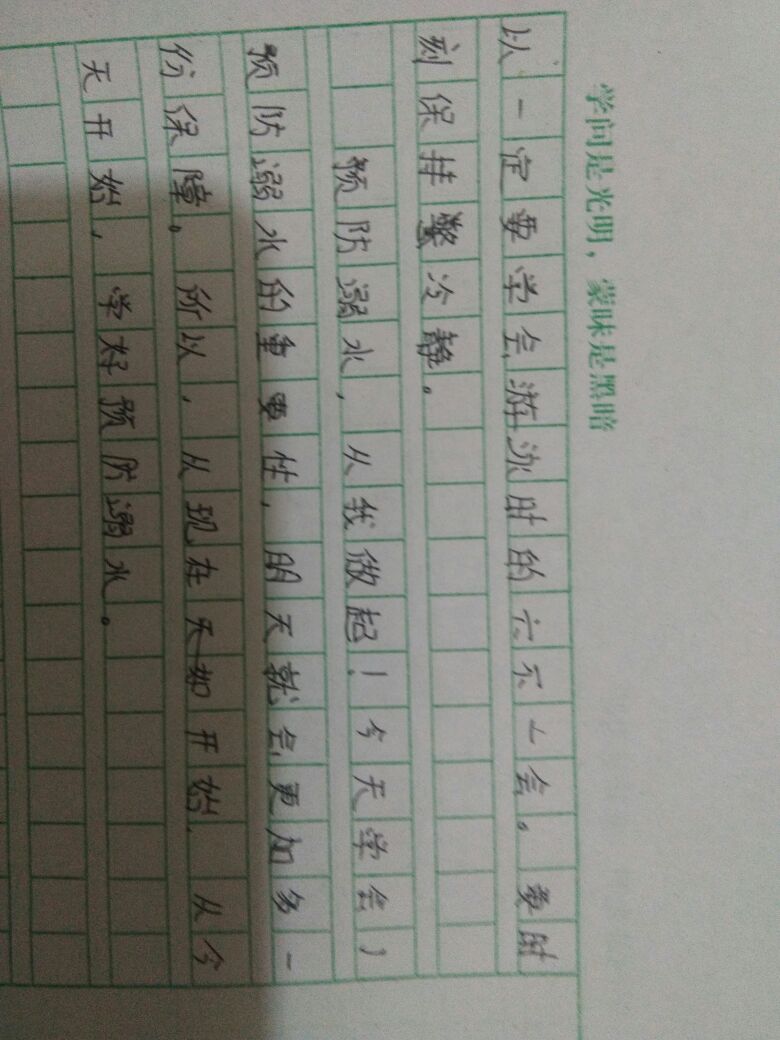 学问是光明，蒙昧是黑暗
以一定要学会游泳时的六不一会。要时
刻保持警冷静。
预防溺水，从我做起！今天学会了
预防溺水的重要性，明天就会更加多一
份保障。所以，从现在天如开始、从今
天开始，学好预防溺水。